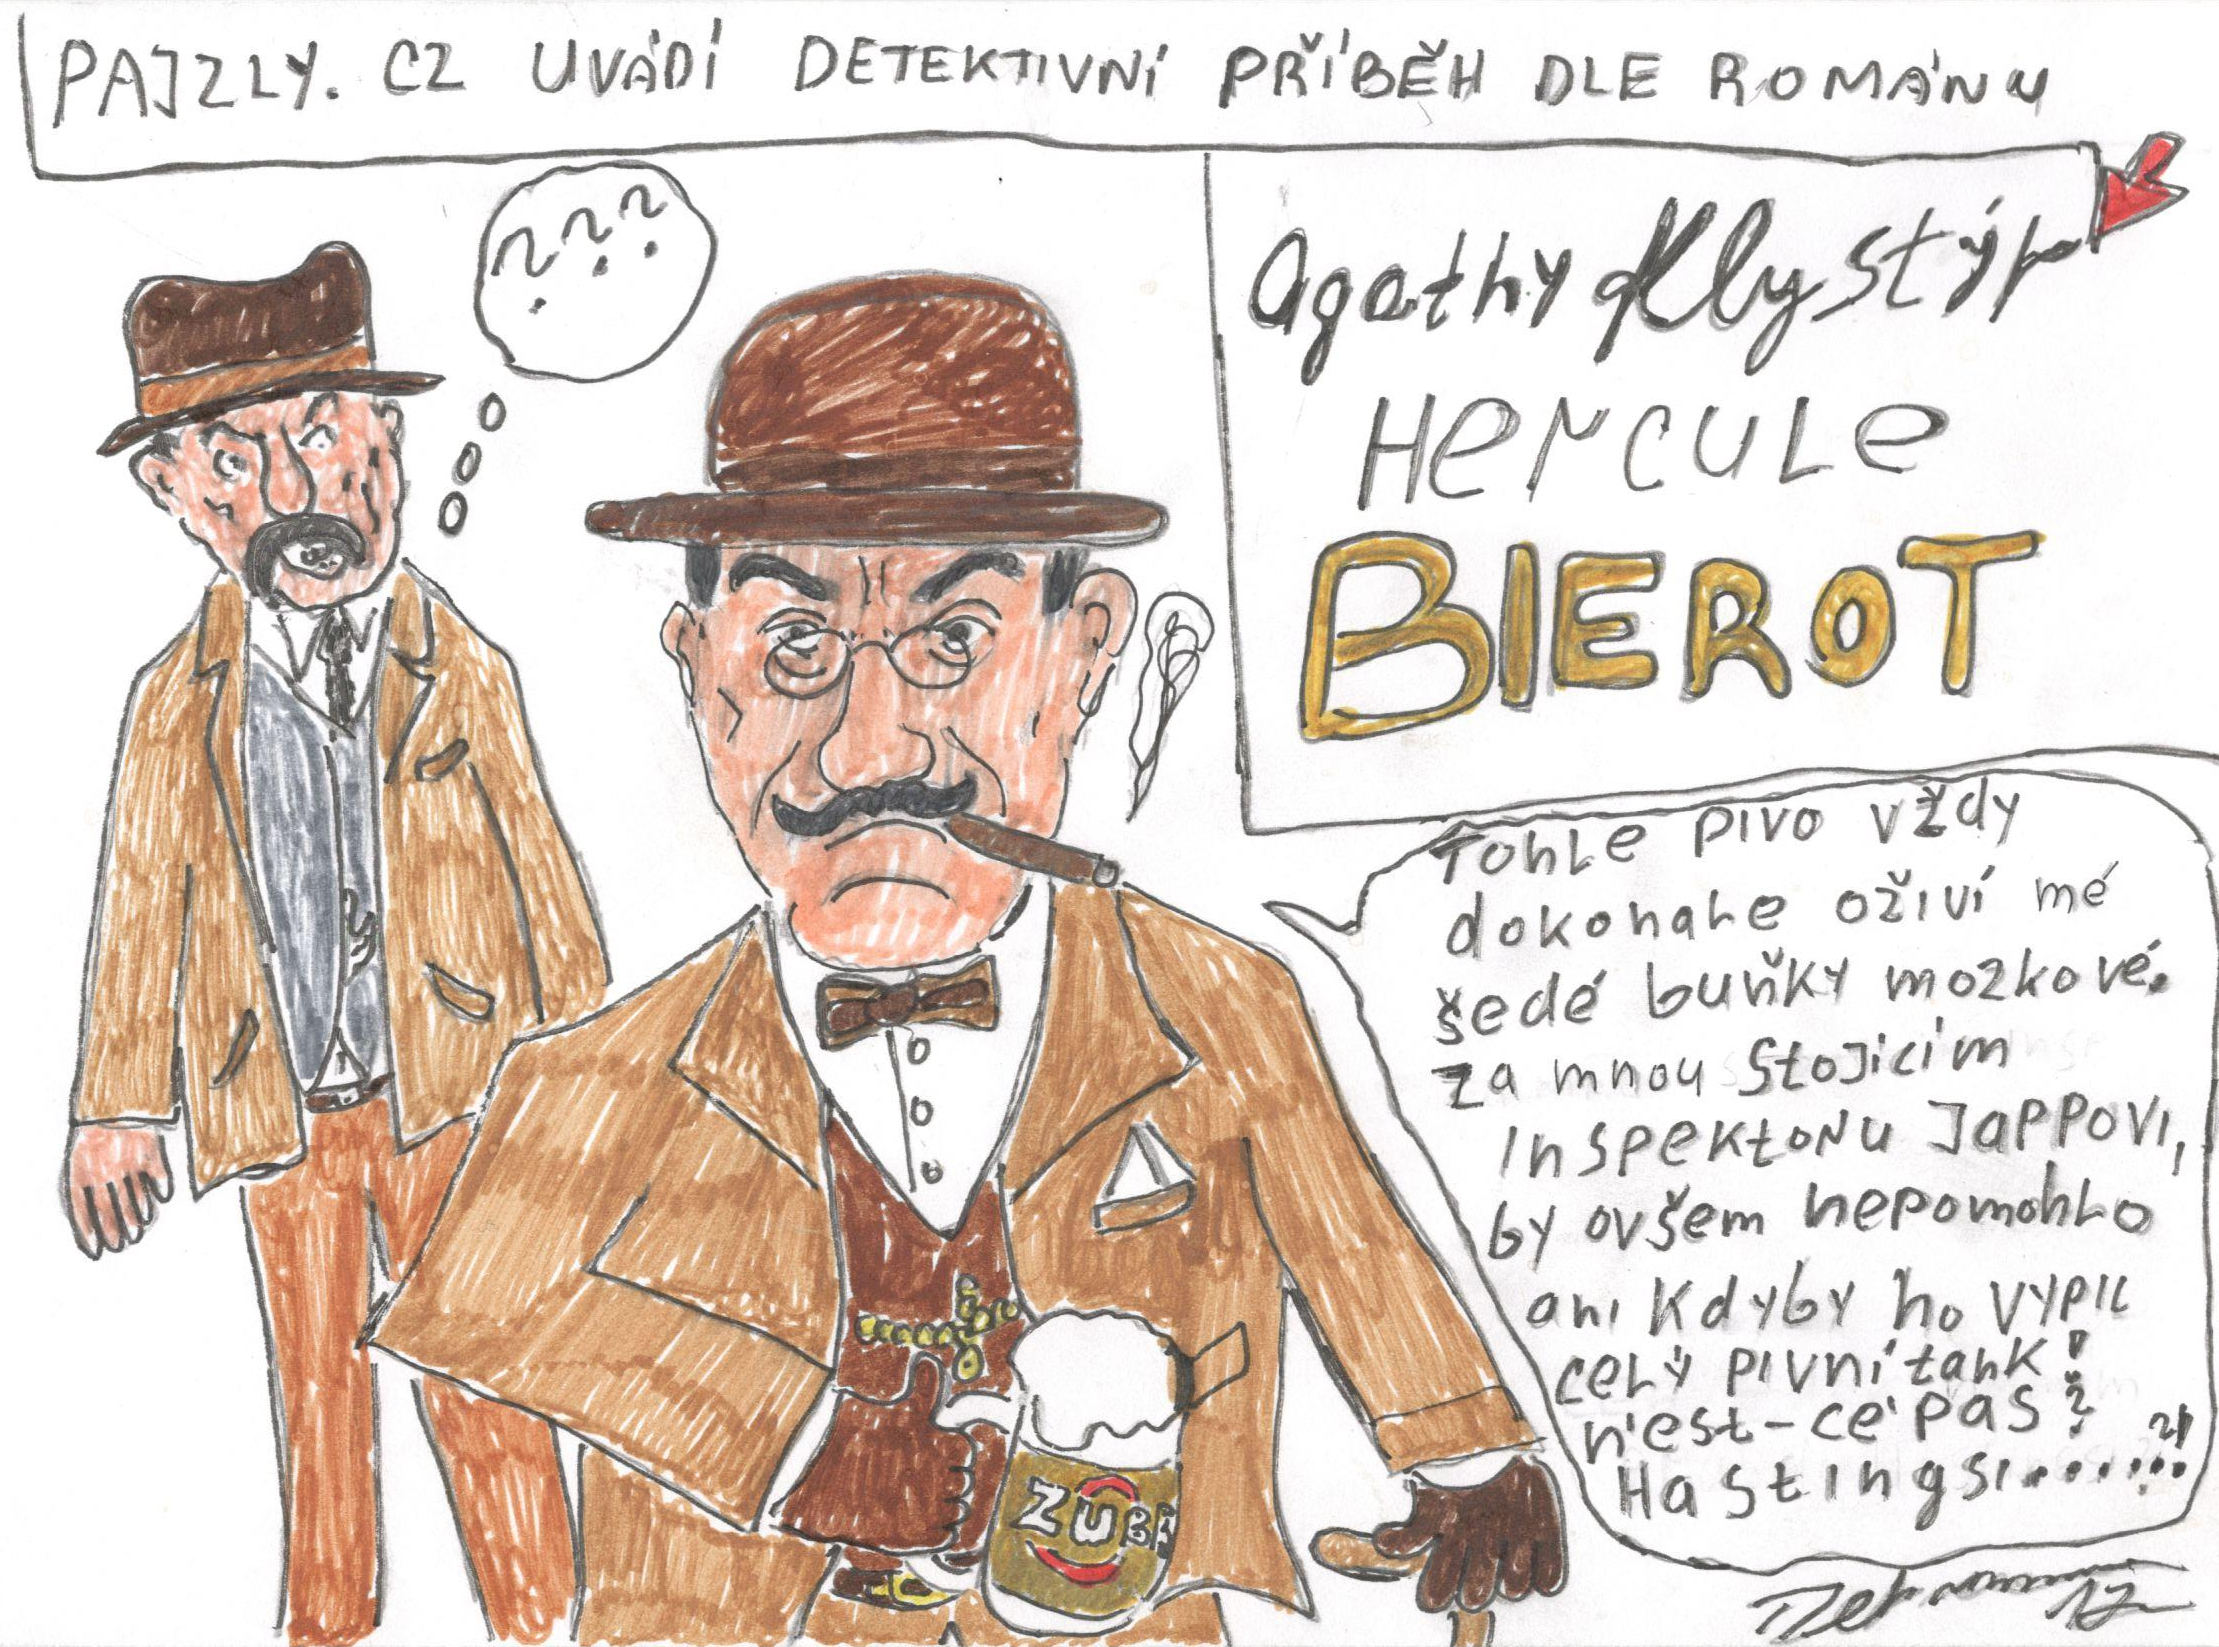 PAJZLY.CZ UVÁDÍ DETEKTIVNÍ PŘÍBĚH DLE ROMÁNU
???
Agathy Klystýr
HERCULE
BIEROT
Tohle pivo vždy
dokonale oživí mé
šedé buňky mozkové.
Za mnou stojícím
Inspektoru Jappovi,
by ovšem nepomohlo
ani kdyby ho vypil
celý pivní tank!
n'est-ce pas?
Hastingsi......?!
ZUBR